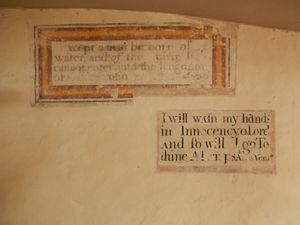 Except a man be born of
water, and of the
cannot enter into the kingdom
of
I will wash my hands
in Innocency o Lord
And so will I go To
thine Alt PSA Verse